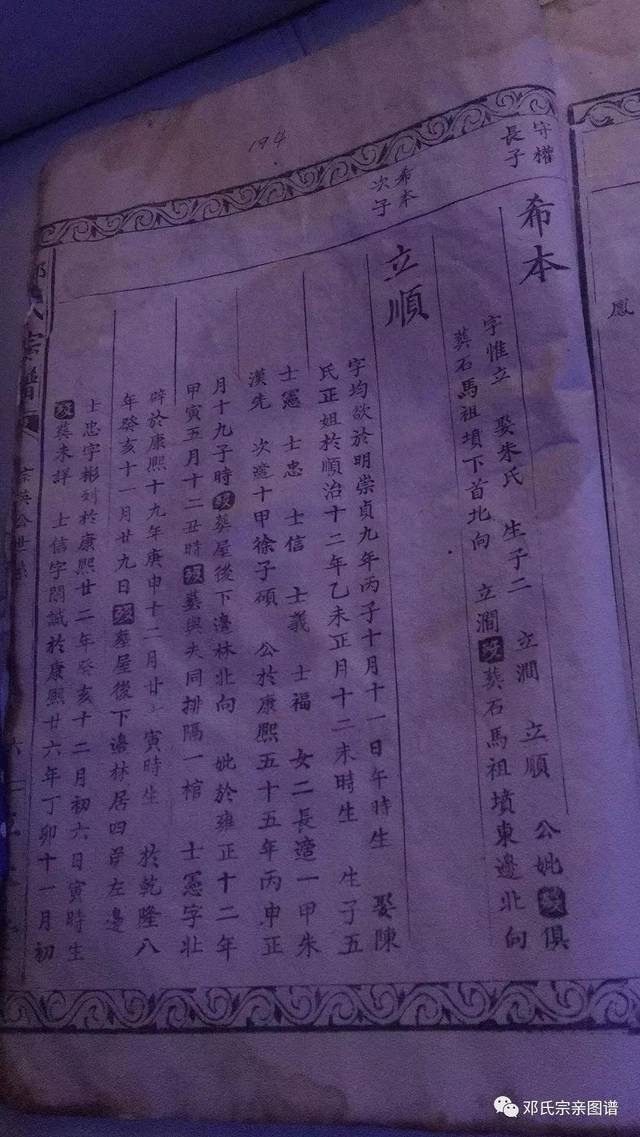 鳳
守權
長子
希本
字惟立 娶朱氏 生子二 立澗 立順 公妣歿俱
葬石馬祖墳下首北向 立澗歿葬石馬祖墳東邊北向
希本
次子
立順
字均欲於明崇貞九年丙子十月十一日午時生 娶陳
氏正姐於順治十二年乙未正月十二未時生 生子五
士憲 士忠 士信 士義 士福 女二長適一甲朱
漢先 次適十甲徐子碩 公於康熙五十五年丙申正
月十九子時歿葬屋後下邊林北向 妣於雍正十二年
甲寅五月十二丑時歿墓與夫同排隔一棺 士憲字壯
於康熙十九年庚申十二月廿 寅時生 於乾隆八
年癸亥十一月廿九日歿 屋後下邊林居四 左邊
士忠字彬 於康熙廿二年癸亥十二月初六日寅時生
歿葬未詳 士信字 誠於康熙廿六年丁卯十一月初
194
宗譜
公世系
邓氏宗亲图谱